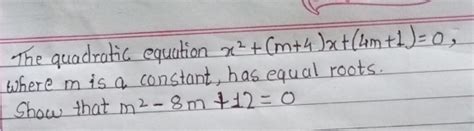 The quadratic equation x² + (m+4)x + (4m+1) = 0,
where m is a constant, has equal roots.
Show that m² - 8m + 12 = 0